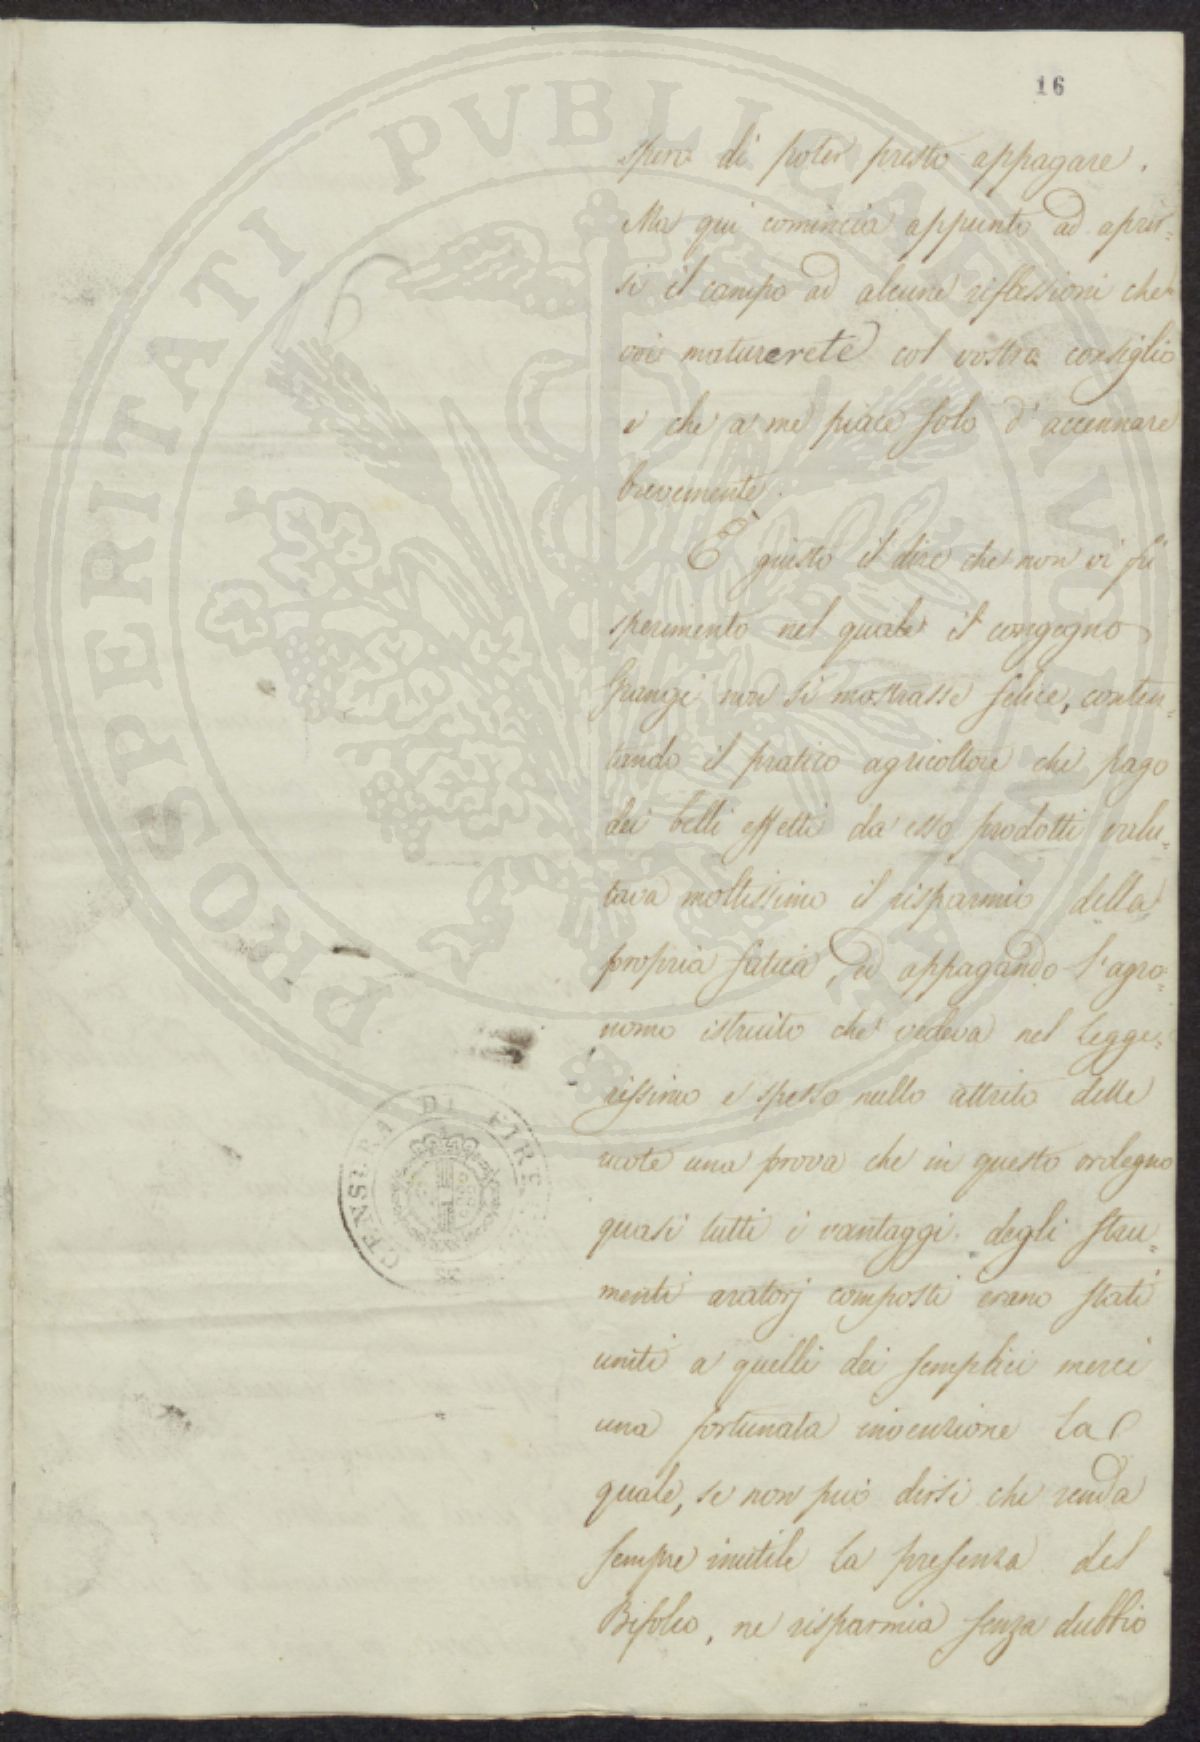 16
spero di poter presto appagare.
Ma qui comincia appunto ad aprir=
si il campo ad alcune riflessioni che
voi maturerete col vostro consiglio
e che a me piace solo d'accennare
brevemente.
È giusto il dire che non vi fù
sperimento nel quale il congegno
Grangé non si mostrasse felice, conten=
tando il pratico agricoltore che pago
dei belli effetti da esso prodotti valu=
tava moltissimo il risparmio della
propria fatica, ed appagando l'agro=
nomo istruito che vedeva nel legge=
rissimo e spesso nullo attrito delle
ruote una prova che in questo ordegno
quasi tutti i vantaggi degli stru=
menti aratorj composti erano stati
uniti a quelli dei semplici mercè
una fortunata invenzione la
quale, se non può dirsi che renda
sempre inutile la presenza del
Bifolco, ne risparmia senza dubbio
16
PROSPERITATI PVBLICAE AVGENDAE
CENSURA DI FIRE